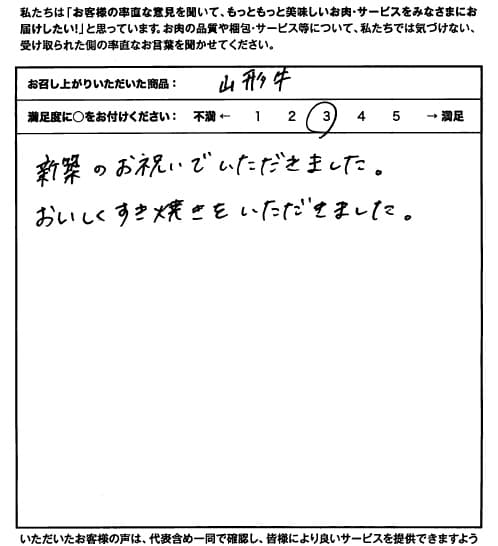 私たちは「お客様の率直な意見を聞いて、もっともっと美味しいお肉・サービスをみなさまにお
届けしたい!」と思っています。お肉の品質や梱包・サービス等について、私たちでは気づけない、
受け取られた側の率直なお言葉を聞かせてください。
お召し上がりいただいた商品： 山形牛
満足度に○をお付けください： 不満 ← 1 2 3 4 5 → 満足
新築のお祝いでいただきました。
おいしくすき焼きをいただきました。
いただいたお客様の声は、代表含め一同で確認し、皆様により良いサービスを提供できますよう